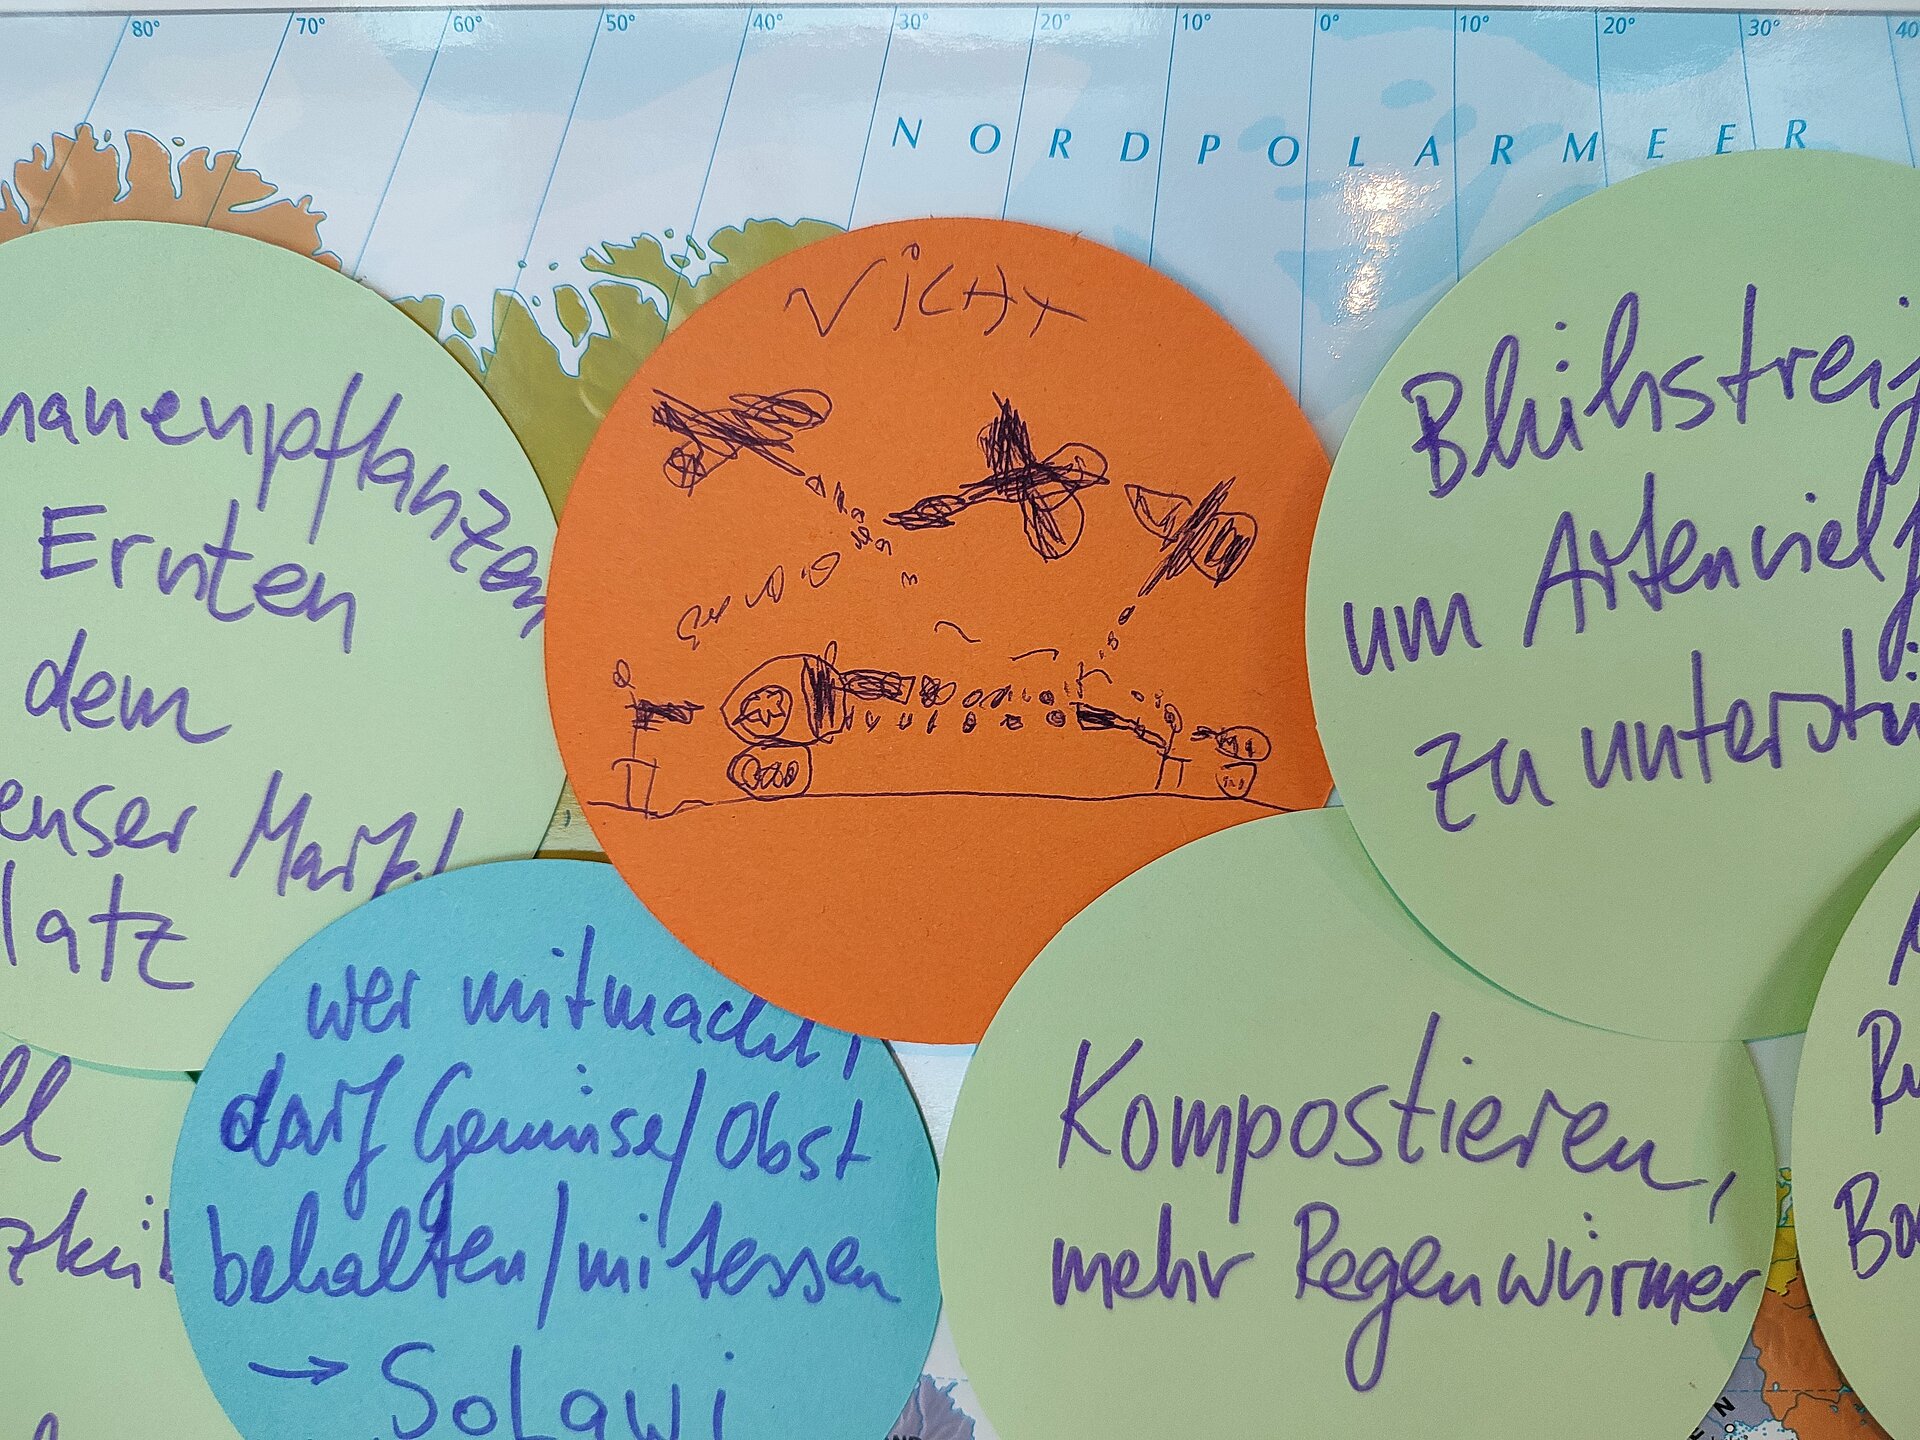 80° 70° 60° 50° 40° 30° 20° 10° 0° 10° 20° 30° 40
NORDPOLARMEER
ViCHT
nanenpflanzen
Ernten
dem
enser Markt
latz
Blühstreif
um Artenvielf
zu unterstü
wer mitmacht,
darf Gemüse/Obst
behalten/mitessen
→ SoLawi
Kompostieren,
mehr Regenwürmer
ll
zkü
Ru
Bo